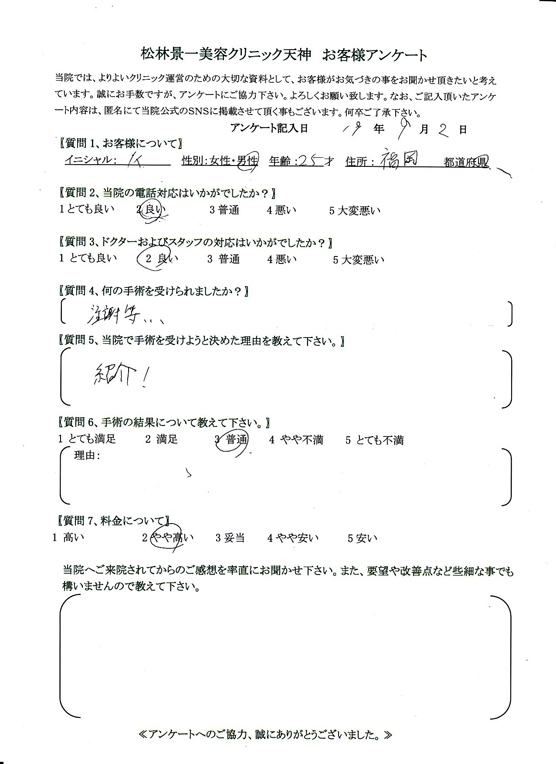 松林景一美容クリニック天神 お客様アンケート
当院では、よりよいクリニック運営のための大切な資料として、お客様がお気づきの事をお聞かせ頂きたいと考え
ています。誠にお手数ですが、アンケートにご協力下さい。よろしくお願い致します。なお、ご記入頂いたアンケ
ート内容は、匿名にて当院公式のSNSに掲載させて頂く事もございます。何卒ご了承下さい。
アンケート記入日 19 年 9 月 2 日
〖質問1、お客様について〗
イニシャル: 性別:女性・男性 年齢:25才 住所: 福岡 都道府県
〖質問2、当院の電話対応はいかがでしたか?〗
1とても良い 2良い 3普通 4悪い 5大変悪い
〖質問3、ドクターおよびスタッフの対応はいかがでしたか?〗
1とても良い 2良い 3普通 4悪い 5大変悪い
〖質問4、何の手術を受けられましたか?〗
注謝等...
〖質問5、当院で手術を受けようと決めた理由を教えて下さい。〗
紹介!
〖質問6、手術の結果について教えて下さい。〗
1とても満足 2満足 3普通 4やや不満 5とても不満
理由:
〖質問7、料金について〗
1高い 2やや高い 3妥当 4やや安い 5安い
当院へご来院されてからのご感想を率直にお聞かせ下さい。また、要望や改善点など些細な事でも
構いませんので教えて下さい。
≪アンケートへのご協力、誠にありがとうございました。≫